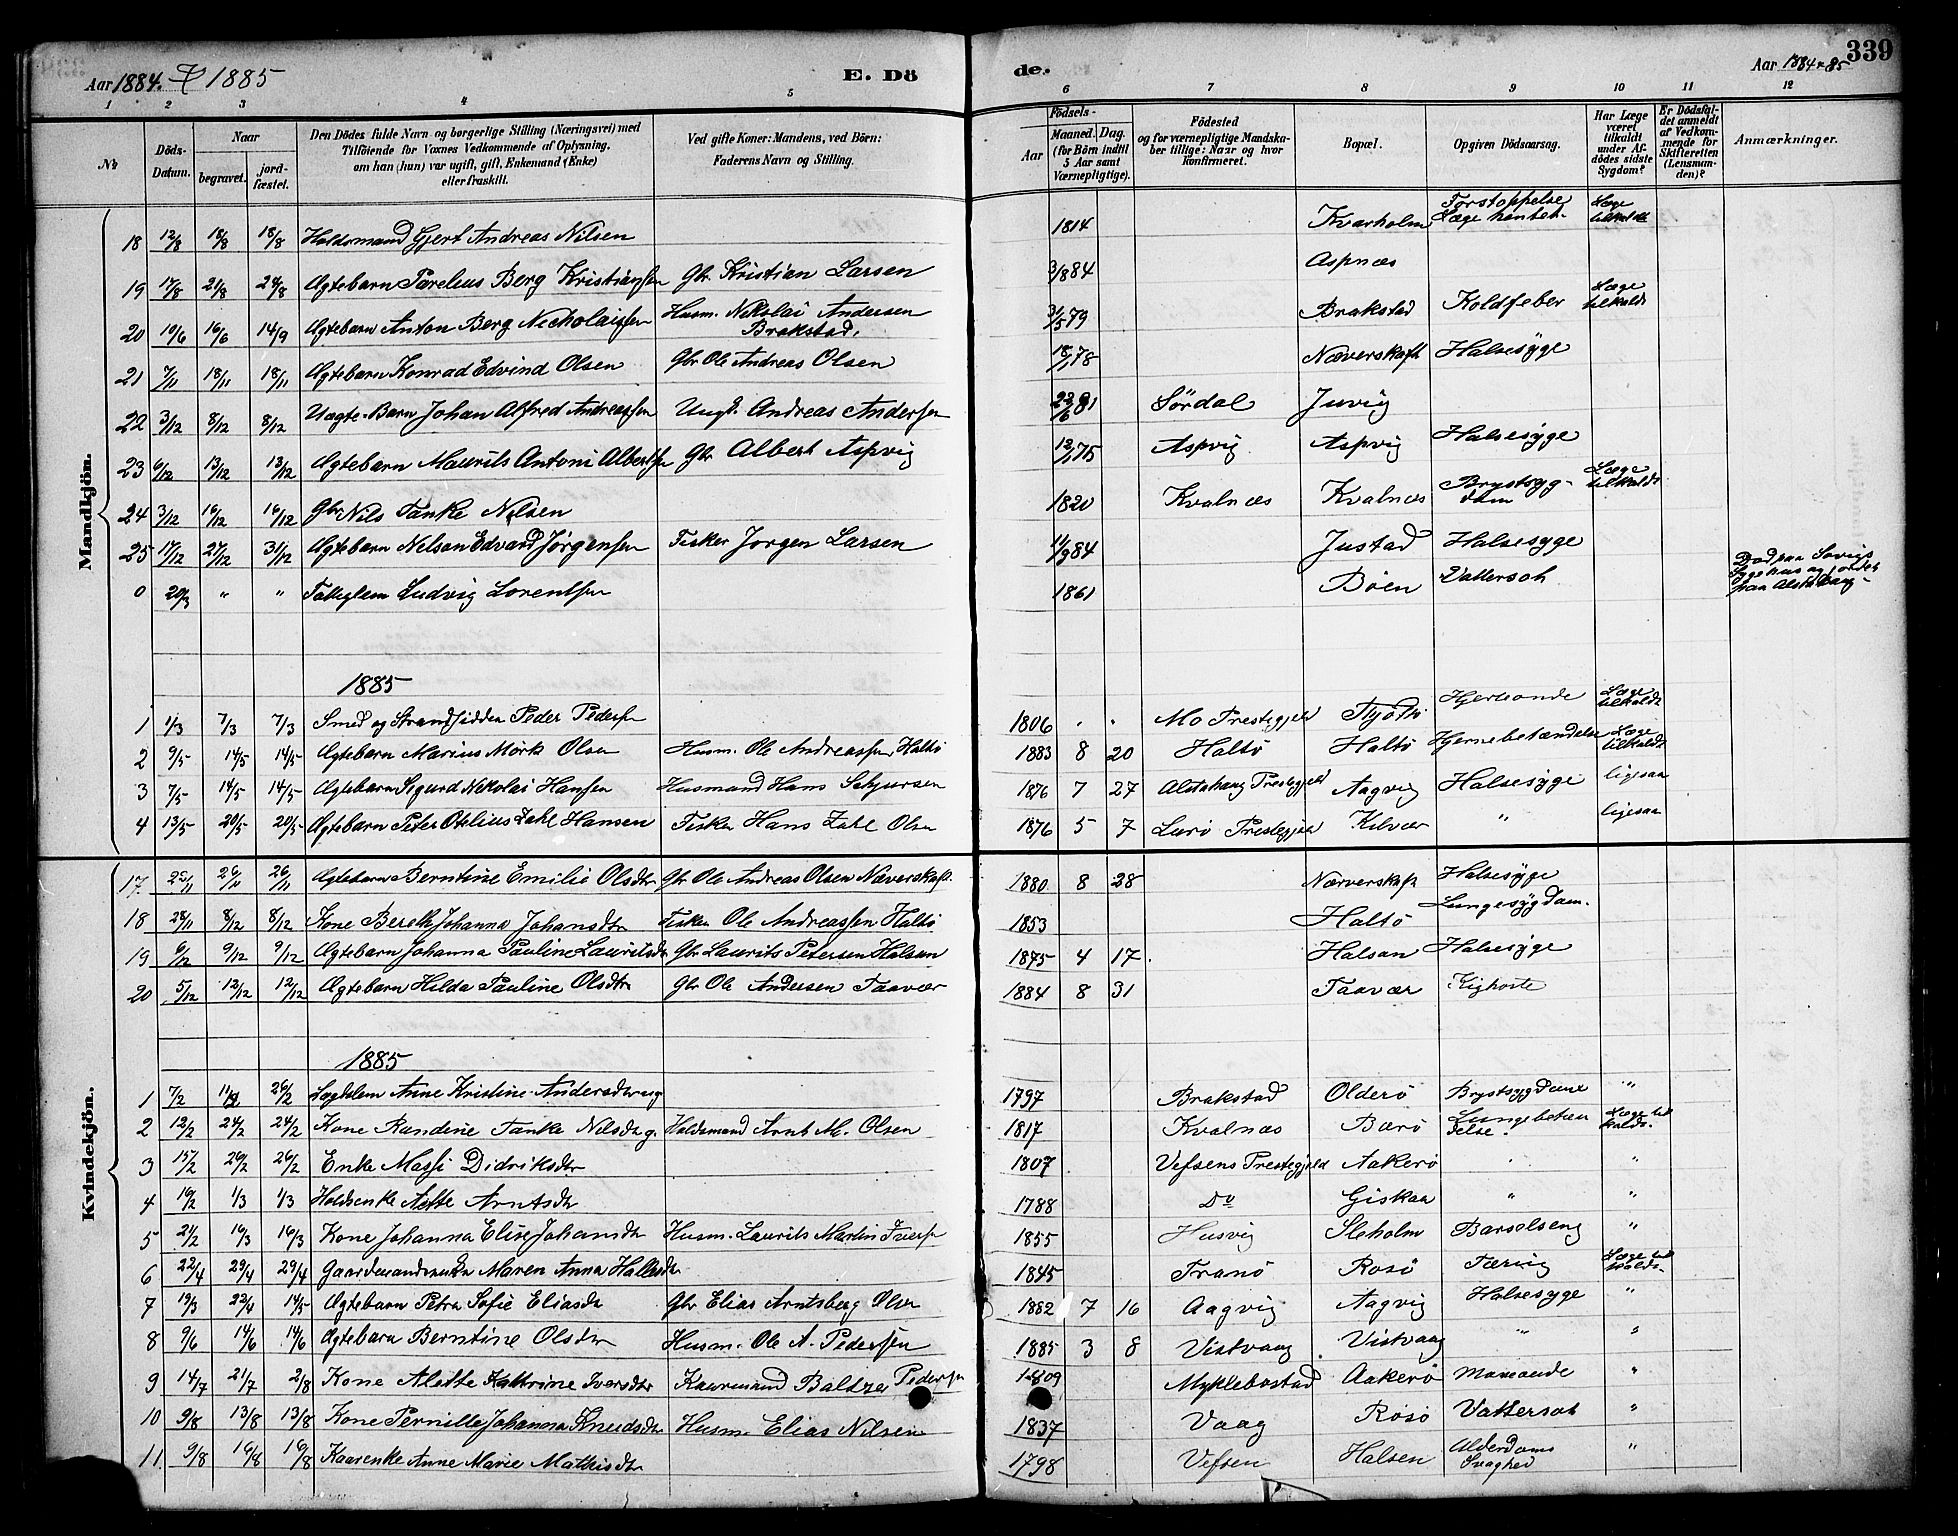 Aar 1884. & 1885
E. Dö
de.
Aar 1884 & 85
339
1 2 3 4 5 6 7 8 9 10 11 12
No
Döds-Datum.
Naar
begravet.
jord-fæstet.
Den Dödes fulde Navn og borgerlige Stilling (Næringsvei) med
Tilföiende for Voxnes Vedkommende af Oplysning,
om han (hun) var ugift, gift, Enkemand (Enke)
eller fraskilt.
Ved gifte Koner: Mandens, ved Börn:
Faderens Navn og Stilling.
Födsels-
Aar
Maaned. Dag.
(for Börn indtil
5 Aar samt
Værnepligtige).
Födested
og for værnepligtige Mandska-
ber tillige: Naar og hvor
konfirmeret.
Bopæl.
Opgiven Dödsaarsag.
Har Læge
været
tilkaldt
under Af-
dödes sidste
Sygdom?
Er Dödsfal-
det anmeldt
af Vedkom-
mende for
Skifteretten
(Lensman-
den)?
Anmærkninger.
Mandkjön.
18 12/8 18/8 18/8 Holdsmand Gjert Andreas Nilsen 1814 Kvarholm Forstoppelse Læge hentet. Læge tilkaldt
19 17/8 21/8 24/8 Ægtebarn Parelius Berg Kristiansen Gbr. Kristian Larsen 3/8 84 Aspnæs
20 10/6 16/6 14/9 Ægtebarn Anton Berg Nicholaissen Husm. Nikolai Andersen Brakstad, 31/5 79 Brakstad Koldfeber Læge tilkaldt
21 7/11 18/11 18/11 Ægtebarn Konrad Edvind Olsen Gbr Ole Andreas Olsen 78 Næverskaft Halsesyge
22 3/12 8/12 8/12 Uægte-Barn Johan Alfred Andreassen Ungk. Andreas Andersen 81 Sördal Juvig
23 6/12 13/12 13/12 Ægtebarn Maurits Antoni Albertsen Gbr Albert Aspvig 75 Aspvig Aspvig Halsesyge
24 3/12 16/12 16/12 Gbr Nils Tanke Nilsen 1820 Kvalnæs Kvalnæs Brystsyg-dom Læge tilkaldt
25 17/12 27/12 31/12 Ægtebarn Nelson Edvard Jörgensen Fisker Jorgen Larsen 11/9 84 Justad Halsesyge
0 20/3 " " Fattiglem Ludvig Lorentsen 1861 Böen Vattersot Död paa Sovigs Sygehus og jordet paa Alstahaug
1885
1 1/3 7/3 7/3 Smed og Strandsidder Peder Pedersen 1806 . . Mo Prestegjeld Tjötta Hjerteonde Læge tilkaldt
2 9/5 14/5 14/5 Ægtebarn Marius Mörk Olsen Husm. Ole Andreassen Haltö 1883 8 20 Haltö Haltö Hjernebetændelse Læge tilkaldt
3 7/5 14/5 14/5 Ægtebarn Sigurd Nikolai Hansen Husmand Hans Sekjursen 1876 7 27 Alstahaug Prestegjeld Aagvig Halsesyge ligesaa
4 13/5 20/5 20/5 Ægtebarn Peter Otelius Zahl Hansen Fisker Hans Zahl Olsen 1876 5 7 Lurö Prestegjeld Kilvær " ligesaa
Kvindekjön.
17 /11 26/11 26/11 Ægtebarn Berntine Emilie Olsdtr Gbr Ole Andreas Olsen Næverskaft. 1880 8 28 Næverskaft Halsesyge
18 28/11 8/12 8/12 Kone Berette Johanna Johansdtr Fisker Ole Andreassen Haltö 1853 Haltö Lungesygdom.
19 6/12 9/12 9/12 Ægtebarn Johanna Pauline Lauritsdtr Gbr Laurits Petersen Halsan 1875 4 17 Halsan Halsesyge
20 5/12 12/12 12/12 Ægtebarn Hilda Pauline Olsdtr Gbr Ole Andersen Taavær 1884 8 31 Taavær Kighoste
1885
1 7/2 26/2 Lægdslem Anne Kristine Andersdtr 1797 Brakstad Olderö Brystsygdome "
2 12/2 24/2 24/2 Kone Randine Tanke Nilsdtr g. Holdsmand Arnt M. Olsen 1817 Kvalnæs Bærö Lungebetændelse. Læge tilkaldt.
3 15/2 26/2 26/2 Enke Massi Didriksdtr 1807 Vefsens Prestegjeld Aakerö " "
4 19/2 1/3 1/3 Holdsenke Aette Arntsdtr 1788 Do Giskaa " "
5 21/2 16/3 16/3 Kone Johanna Elise Johansdtr Husm. Laurits Martin Iversen 1855 Husvig Sleholm Barselseng "
6 22/4 29/4 29/4 Gaardmandsenke Maren Anna Hallesdtr 1845 Tranö Rosö Tæring Læge tilkaldt.
7 19/3 22/4 14/5 Ægtebarn Petra Sofie Eliasdtr Gbr Elias Arntsberg Olsen 1882 7 16 Aagvig Aagvig Halsesyge "
8 9/6 14/6 14/6 Ægtebarn Berntine Olsdtr Husm. Ole A. Pedersen 1885 3 8 Vistvaag Vistvaag " "
9 14/7 21/7 2/8 Kone Alette Kathrine Iversdtr Kaarmand Baltzer Pedersen 1809 Myklebostad Aakerö Maveonde "
10 9/8 13/8 13/8 Kone Pernille Johanna Knudsdtr Husm. Elias Nilsen 1837 Vaag Rosö Vattersot "
11 9/8 16/8 16/8 Kaarenke Anne Marie Mathisdtr 1798 Vefsen Halsen Alderdoms Svaghed "